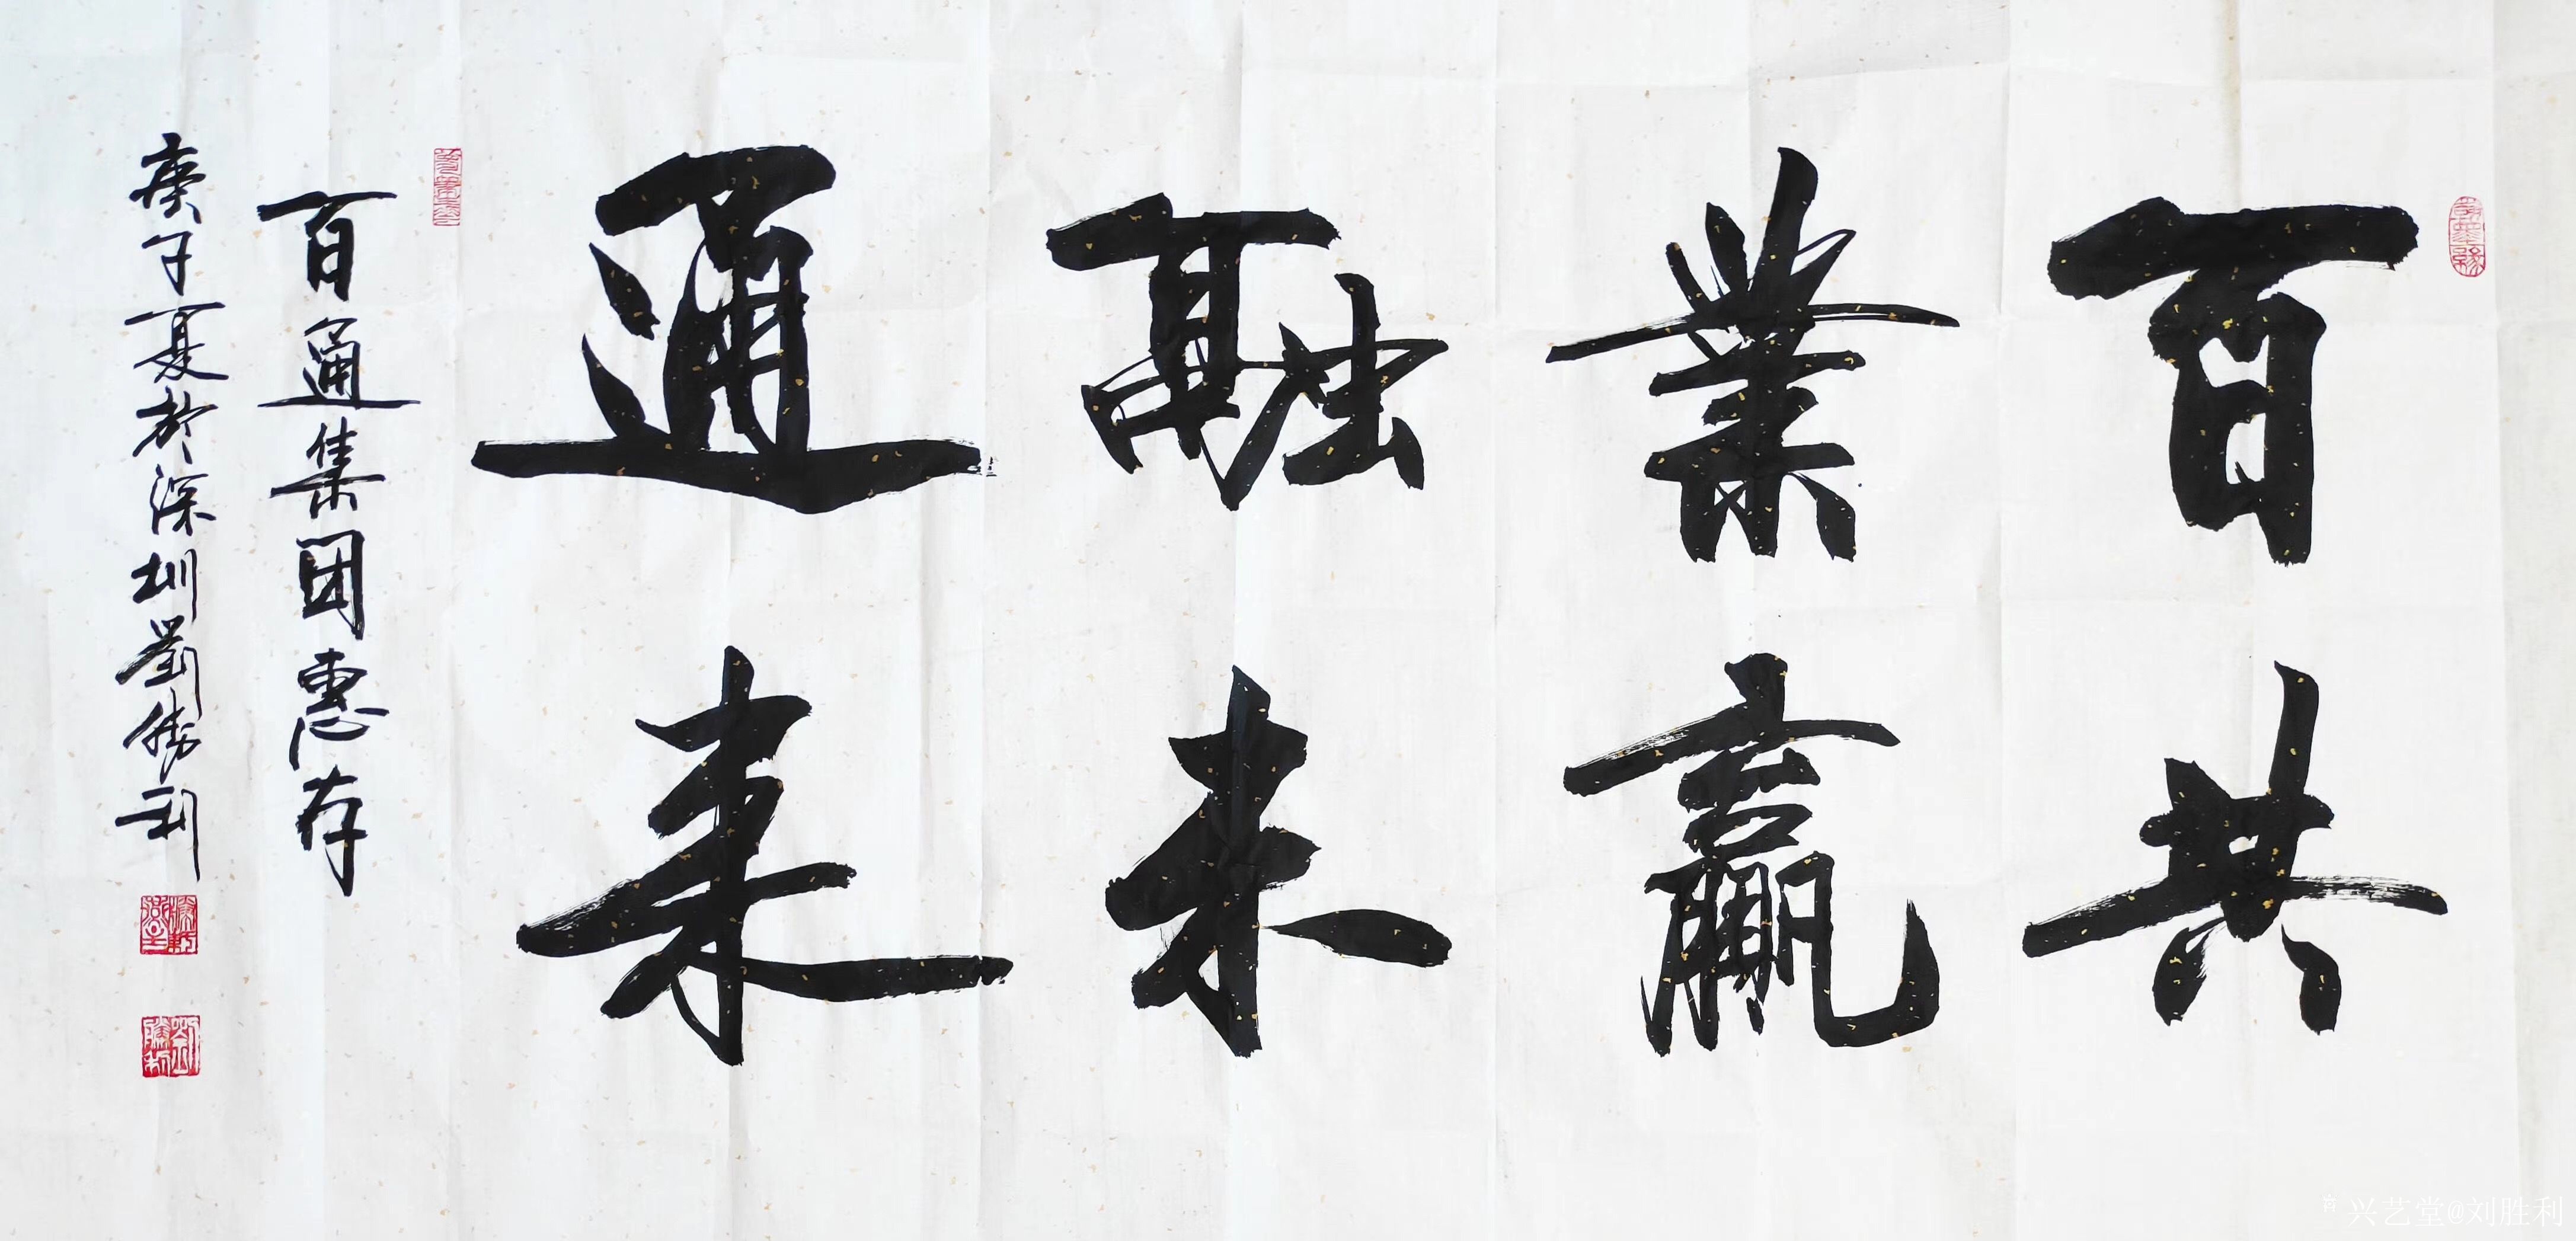 百業融通
共贏未来
百通集团惠存
庚子夏於深圳劉勝利
兴艺堂@刘胜利